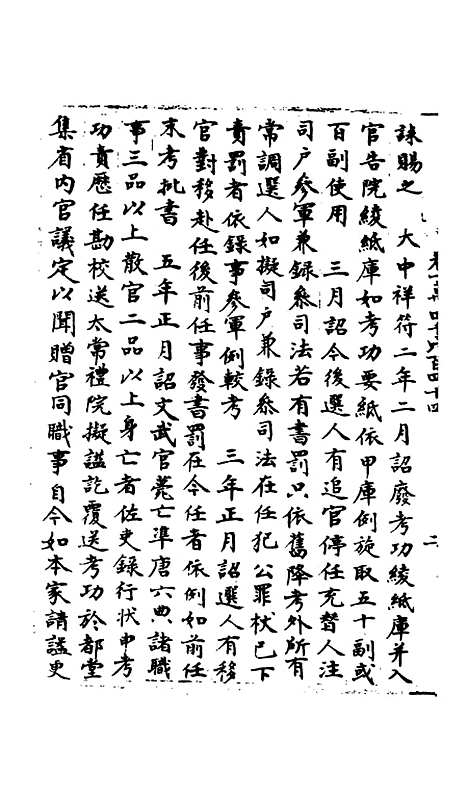 誄賜之　大中祥符二年二月詔廢考功綾紙庫并入
官告院綾紙庫如考功要紙依甲庫例旋取五十副或
百副使用　三月詔今後選人有追官停任充替人注
司户參軍兼錄叅司法若有書罰只依舊降考外所有
常調選人如擬司户兼錄叅司法在任犯公罪杖已下
責罰者依錄事參軍例較考　三年正月詔選人有移
官對移赴任後前任事發書罰在今任者依例如前任
末考批書　五年正月詔文武官薨亡準唐六典諸職
事三品以上散官二品以上身亡者佐吏錄行狀申考
功責歷任勘校送太常禮院擬諡訖覆送考功於都堂
集省内官議定以聞贈官同職事自今如本家請諡更
二